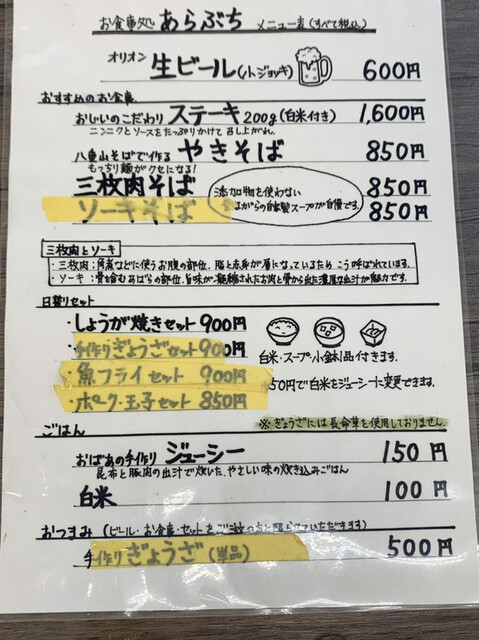 お食事処 あらぶち メニュー表(すべて税込)
オリオン 生ビール(小ジョッキ) 600円
おすすめのお食事
おじいのこだわり ステーキ 200g(白米付き) 1,600円
ニンニクとソースをたっぷりかけて召し上がれ。
八重山そばで作る やきそば 850円
もっちり麺がクセになる!
三枚肉そば 850円
ソーキそば 850円
添加物を使わない
昔ながらの自家製スープが自慢です。
三枚肉とソーキ
・三枚肉:角煮などに使うお腹の部位、脂と赤身が層になっているため、こう呼ばれています。
・ソーキ:骨を含むあばらの部位、旨味が凝縮されたお肉と骨から出た濃厚な出汁が魅力です。
日替りセット
・しょうが焼きセット 900円
・手作りぎょうざセット 900円
・魚フライセット 900円
・ポーク・玉子セット 850円
白米・スープ・小鉢1品付きます。
+50円で白米をジューシーに変更できます。
※ぎょうざには長命草を使用しておりません。
ごはん
おばあの手作り ジューシー 150円
昆布と豚肉の出汁で炊いた、やさしい味の炊き込みごはん
白米 100円
おつまみ (ビール・お食事・セットをご注文のお客様限りとさせていただきます)
手作りぎょうざ(単品) 500円